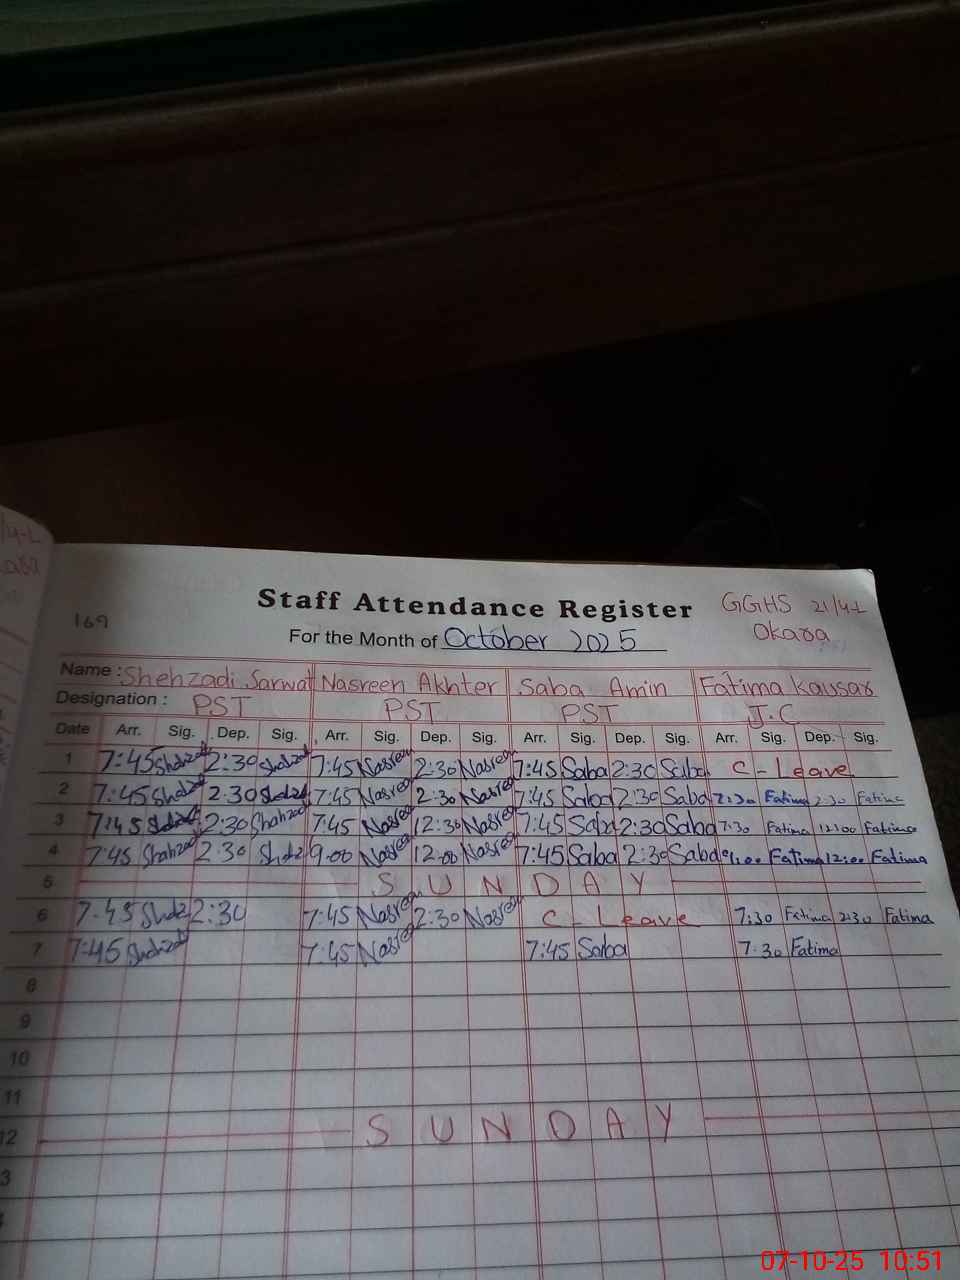 Staff Attendance Register
GGHS 21/4-L
Okara
169
For the Month of October 2025
Name : Shehzadi Sarwat Nasreen Akhter Saba Amin Fatima Kausar
Designation : PST PST PST J.C
Date Arr. Sig. Dep. Sig. Arr. Sig. Dep. Sig. Arr. Sig. Dep. Sig. Arr. Sig. Dep. Sig.
1 7:45 2:30 7:45 Nasreen 2:30 Nasreen 7:45 Saba 2:30 Saba C - Leave
2 7:45 2:30 7:45 Nasreen 2:30 Nasreen 7:45 Saba 2:30 Saba 7:30 Fatima 2:30 Fatima
3 7:45 2:30 Shahzad 7:45 Nasreen 12:30 Nasreen 7:45 Saba 2:30 Saba 7:30 Fatima 12:00 Fatima
4 7:45 Shahzad 2:30 9:00 Nasreen 12:00 Nasreen 7:45 Saba 2:30 Saba 9:00 Fatima 12:00 Fatima
5 S U N D A Y
6 7:45 2:30 7:45 Nasreen 2:30 Nasreen C - Leave 7:30 Fatima 2:30 Fatima
7 7:45 7:45 Nasreen 7:45 Saba 7:30 Fatima
8
9
10
11
12 S U N D A Y
3
07-10-25 10:51